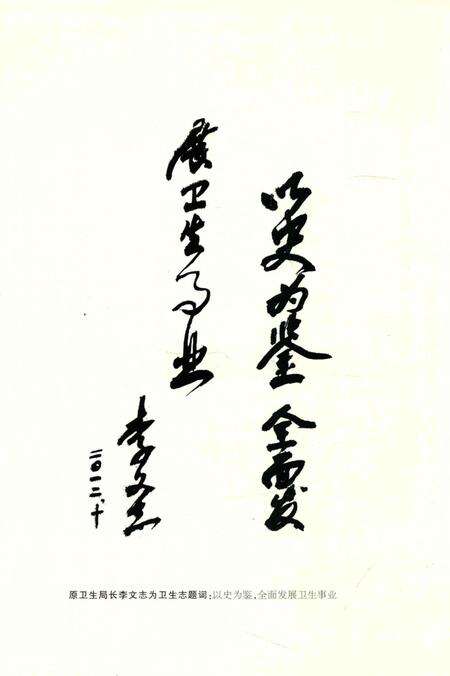 以史为鉴 全面发
展卫生事业
李文志
二〇一二.十
原卫生局长李文志为卫生志题词:以史为鉴,全面发展卫生事业